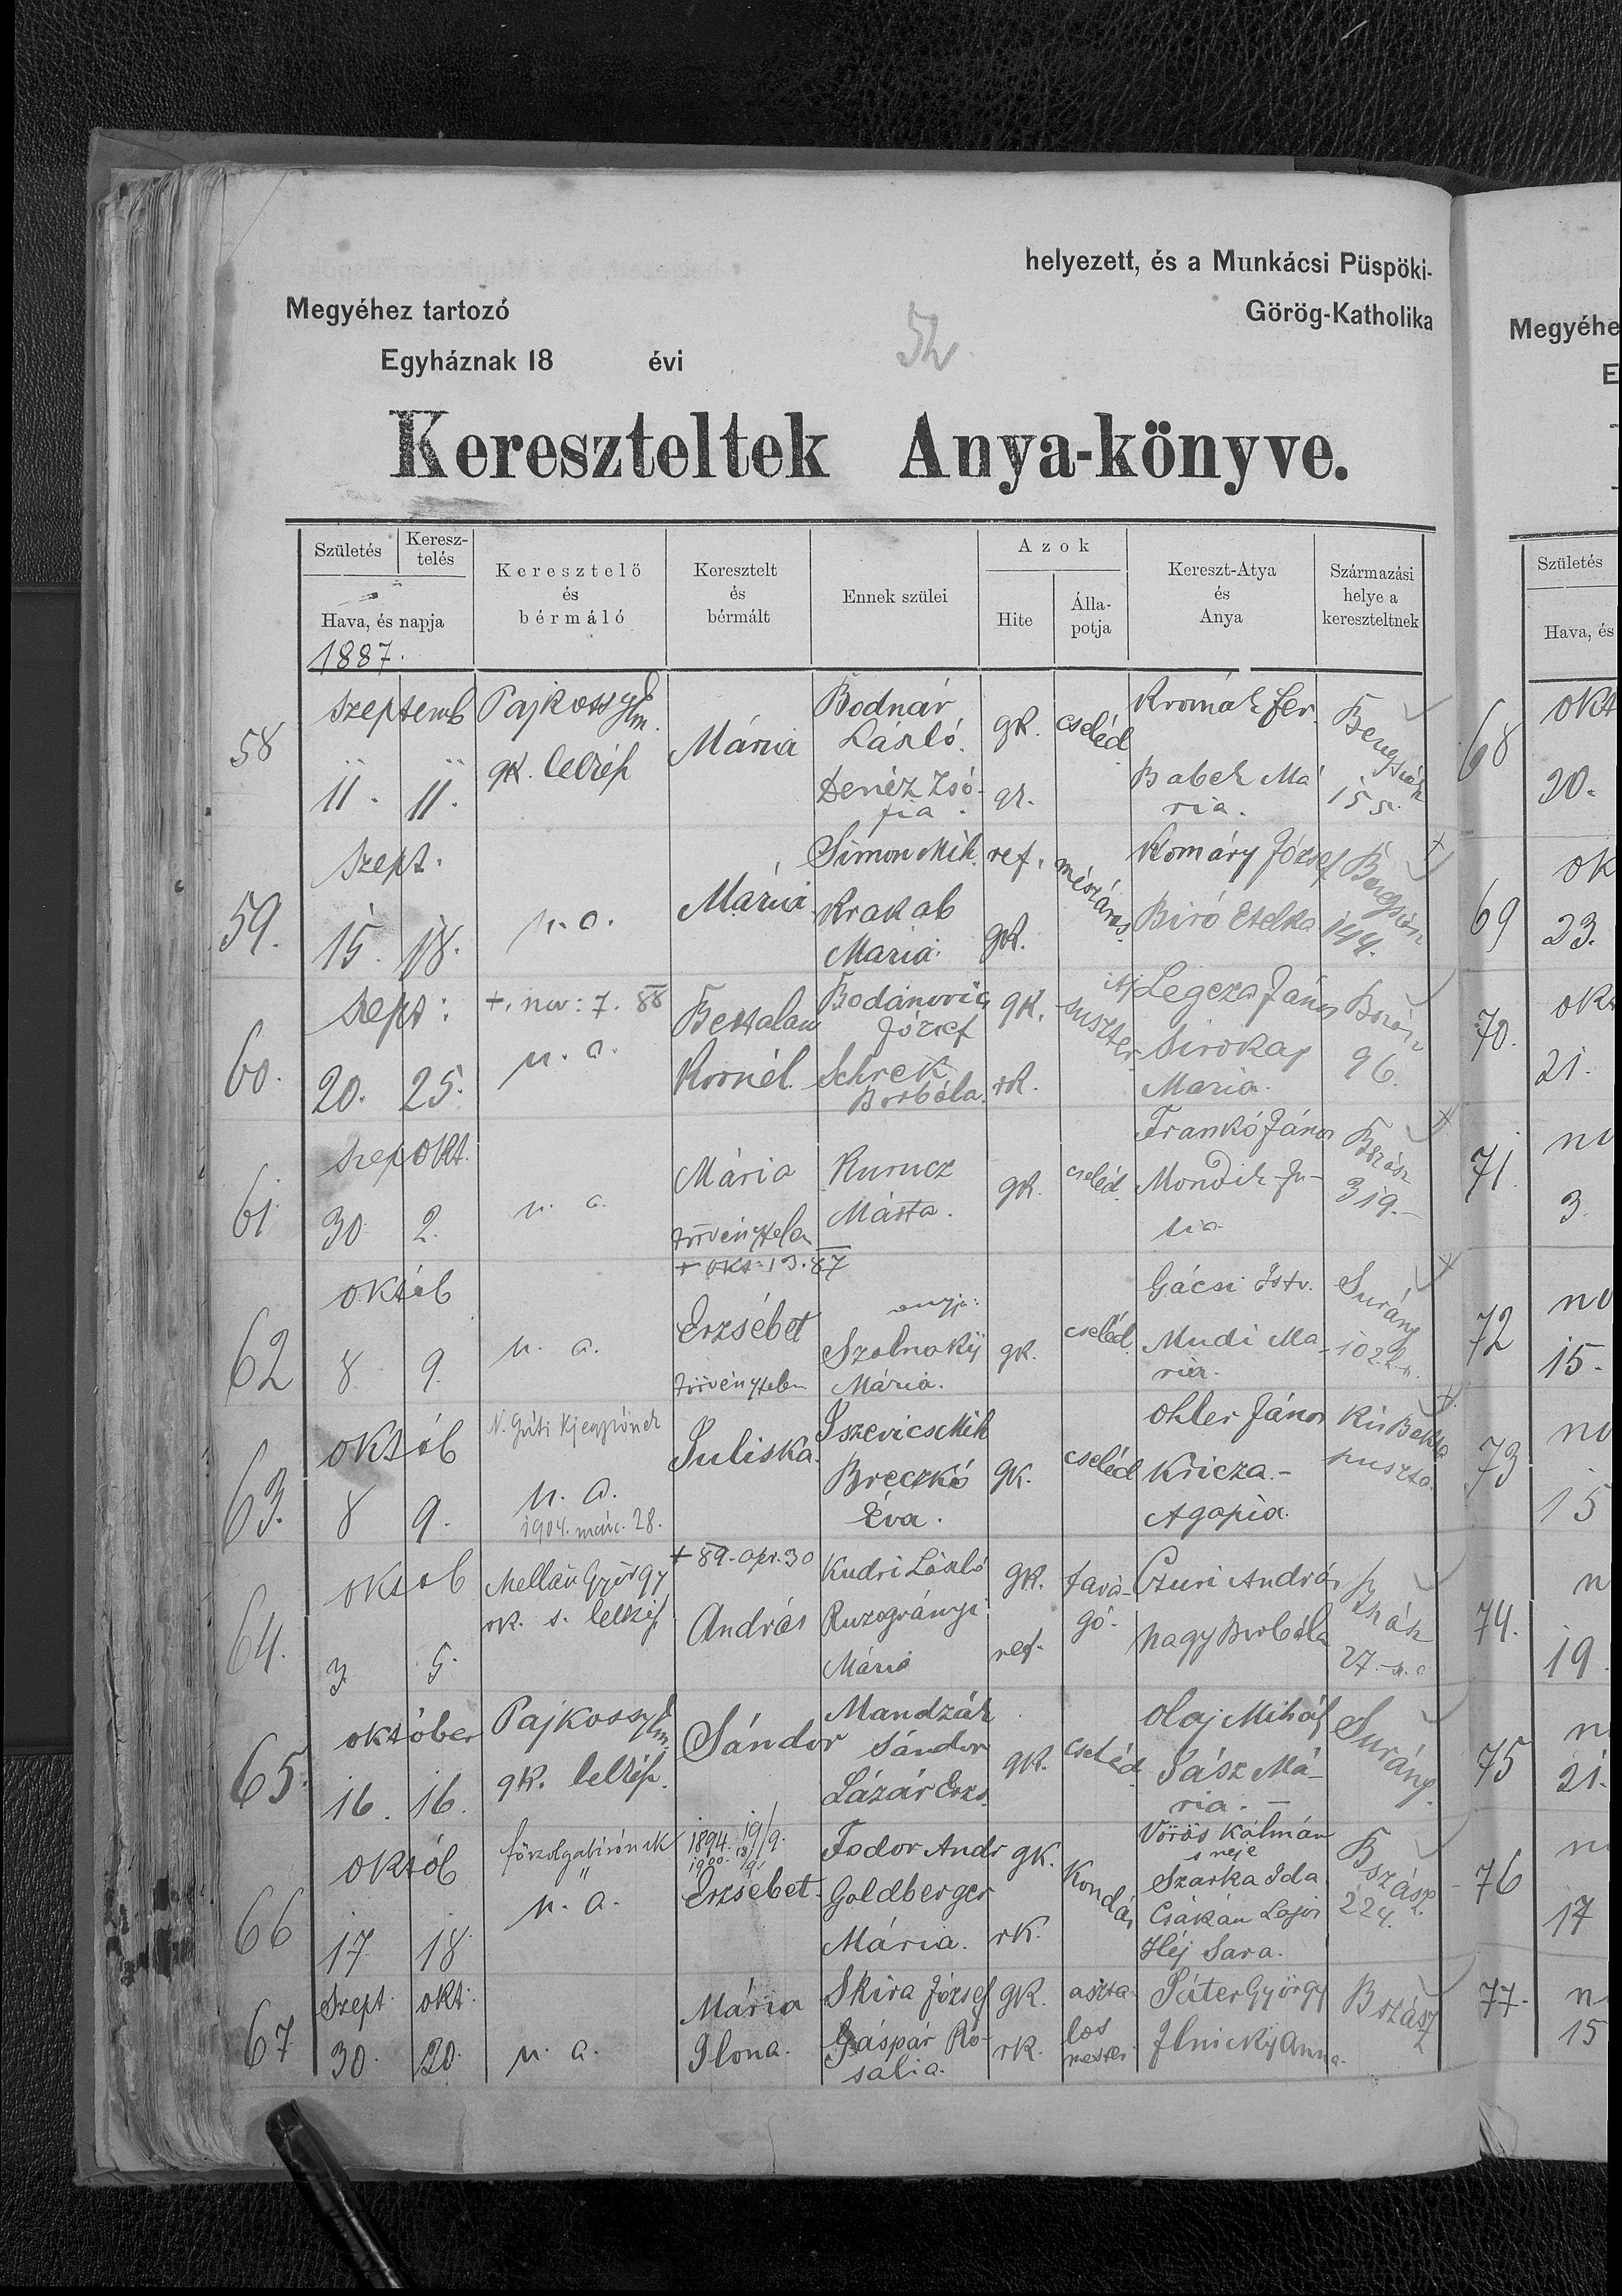 helyezett, és a Munkácsi Püspöki-
Megyéhez tartozó Görög-Katholika
Egyháznak 18 évi
52
Kereszteltek Anya-könyve.
Születés Keresz-telés Keresztelő és bérmáló Keresztelt és bérmált Ennek szülei Azok Hite Álla-potja Kereszt-Atya és Anya Származási helye a kereszteltnek
Hava, és napja
1887.
58 szeptemb Pajkossy Em. Mária Bodnár gk. cseléd
11. 11. gk. lelkész László.
Denéz Zsó-
fia.
Babek Má
ria. 155.
59. szept. Mária Simon Mih. ref. mészáros Komáry József
15. 18. u. a. Krakab Biró Etelka 144.
Maria. gk.
60. szept: +. nov: 7. 88 Bertalan gk. suszter Legeza János
20. 25. u. a. Kornél. József Sirokay 96.
Schrek Maria.
Borbála. rk.
61. szep okt. Mária Kurucz gk. cseléd. Frankó János Bszász
30. 2. u. a. törvénytelen Márta. Mondik Ju- 319.
+ okt: 13. 87 lia
62 októb Erzsébet anyja: Gácsi Istv. Surány
8. 9. u. a. törvénytelen Szolnoky gk. cseléd. Mudi Ma-
Mária. ria.
63. októb Juliska. Iszevics Mih ohler János Kis Bakta
8 9. u. a. Breczkó gk. cseléd Kricza puszta.
1904. márc. 28. Éva. Agapia.
64. októb Mellau György + 89. apr. 30 Kudri László gk. favá- Czuri András
3. 5. gk. s. lelkész András gó. Nagy Borbála
Mária ref. 27.
65. október Pajkossy Em. Sándor Mandzák olaj Mihály Surány.
16. 16. gk. lelkész. Sándor gk. cseléd. Sász Má-
Lázár Erzs. ria.
66 októb főszolgabirónak 1894. 19/9. Fodor Andr gk. Kondás Vörös Kálmán Bszász.
17. 18. u. a. 1900. Erzsébet. Goldberger s neje 224.
Mária. rk. Szarka Ida
Csákán Lajos
Héj Sara.
67 Szept. okt. Mária Skira József gk. aszta Páter György Bszász
30. 20. u. a. Ilona. Gáspár Ro- rk. los Ilniczky Anna.
salia. mester
Megyéhe
E
Születés
Hava, és
68 okt
20.
69 ok
23.
70. okt
21.
71. no
3.
72 no
15.
73 no
15
74. n
19.
75 n
21.
76 n
17
77. n
15